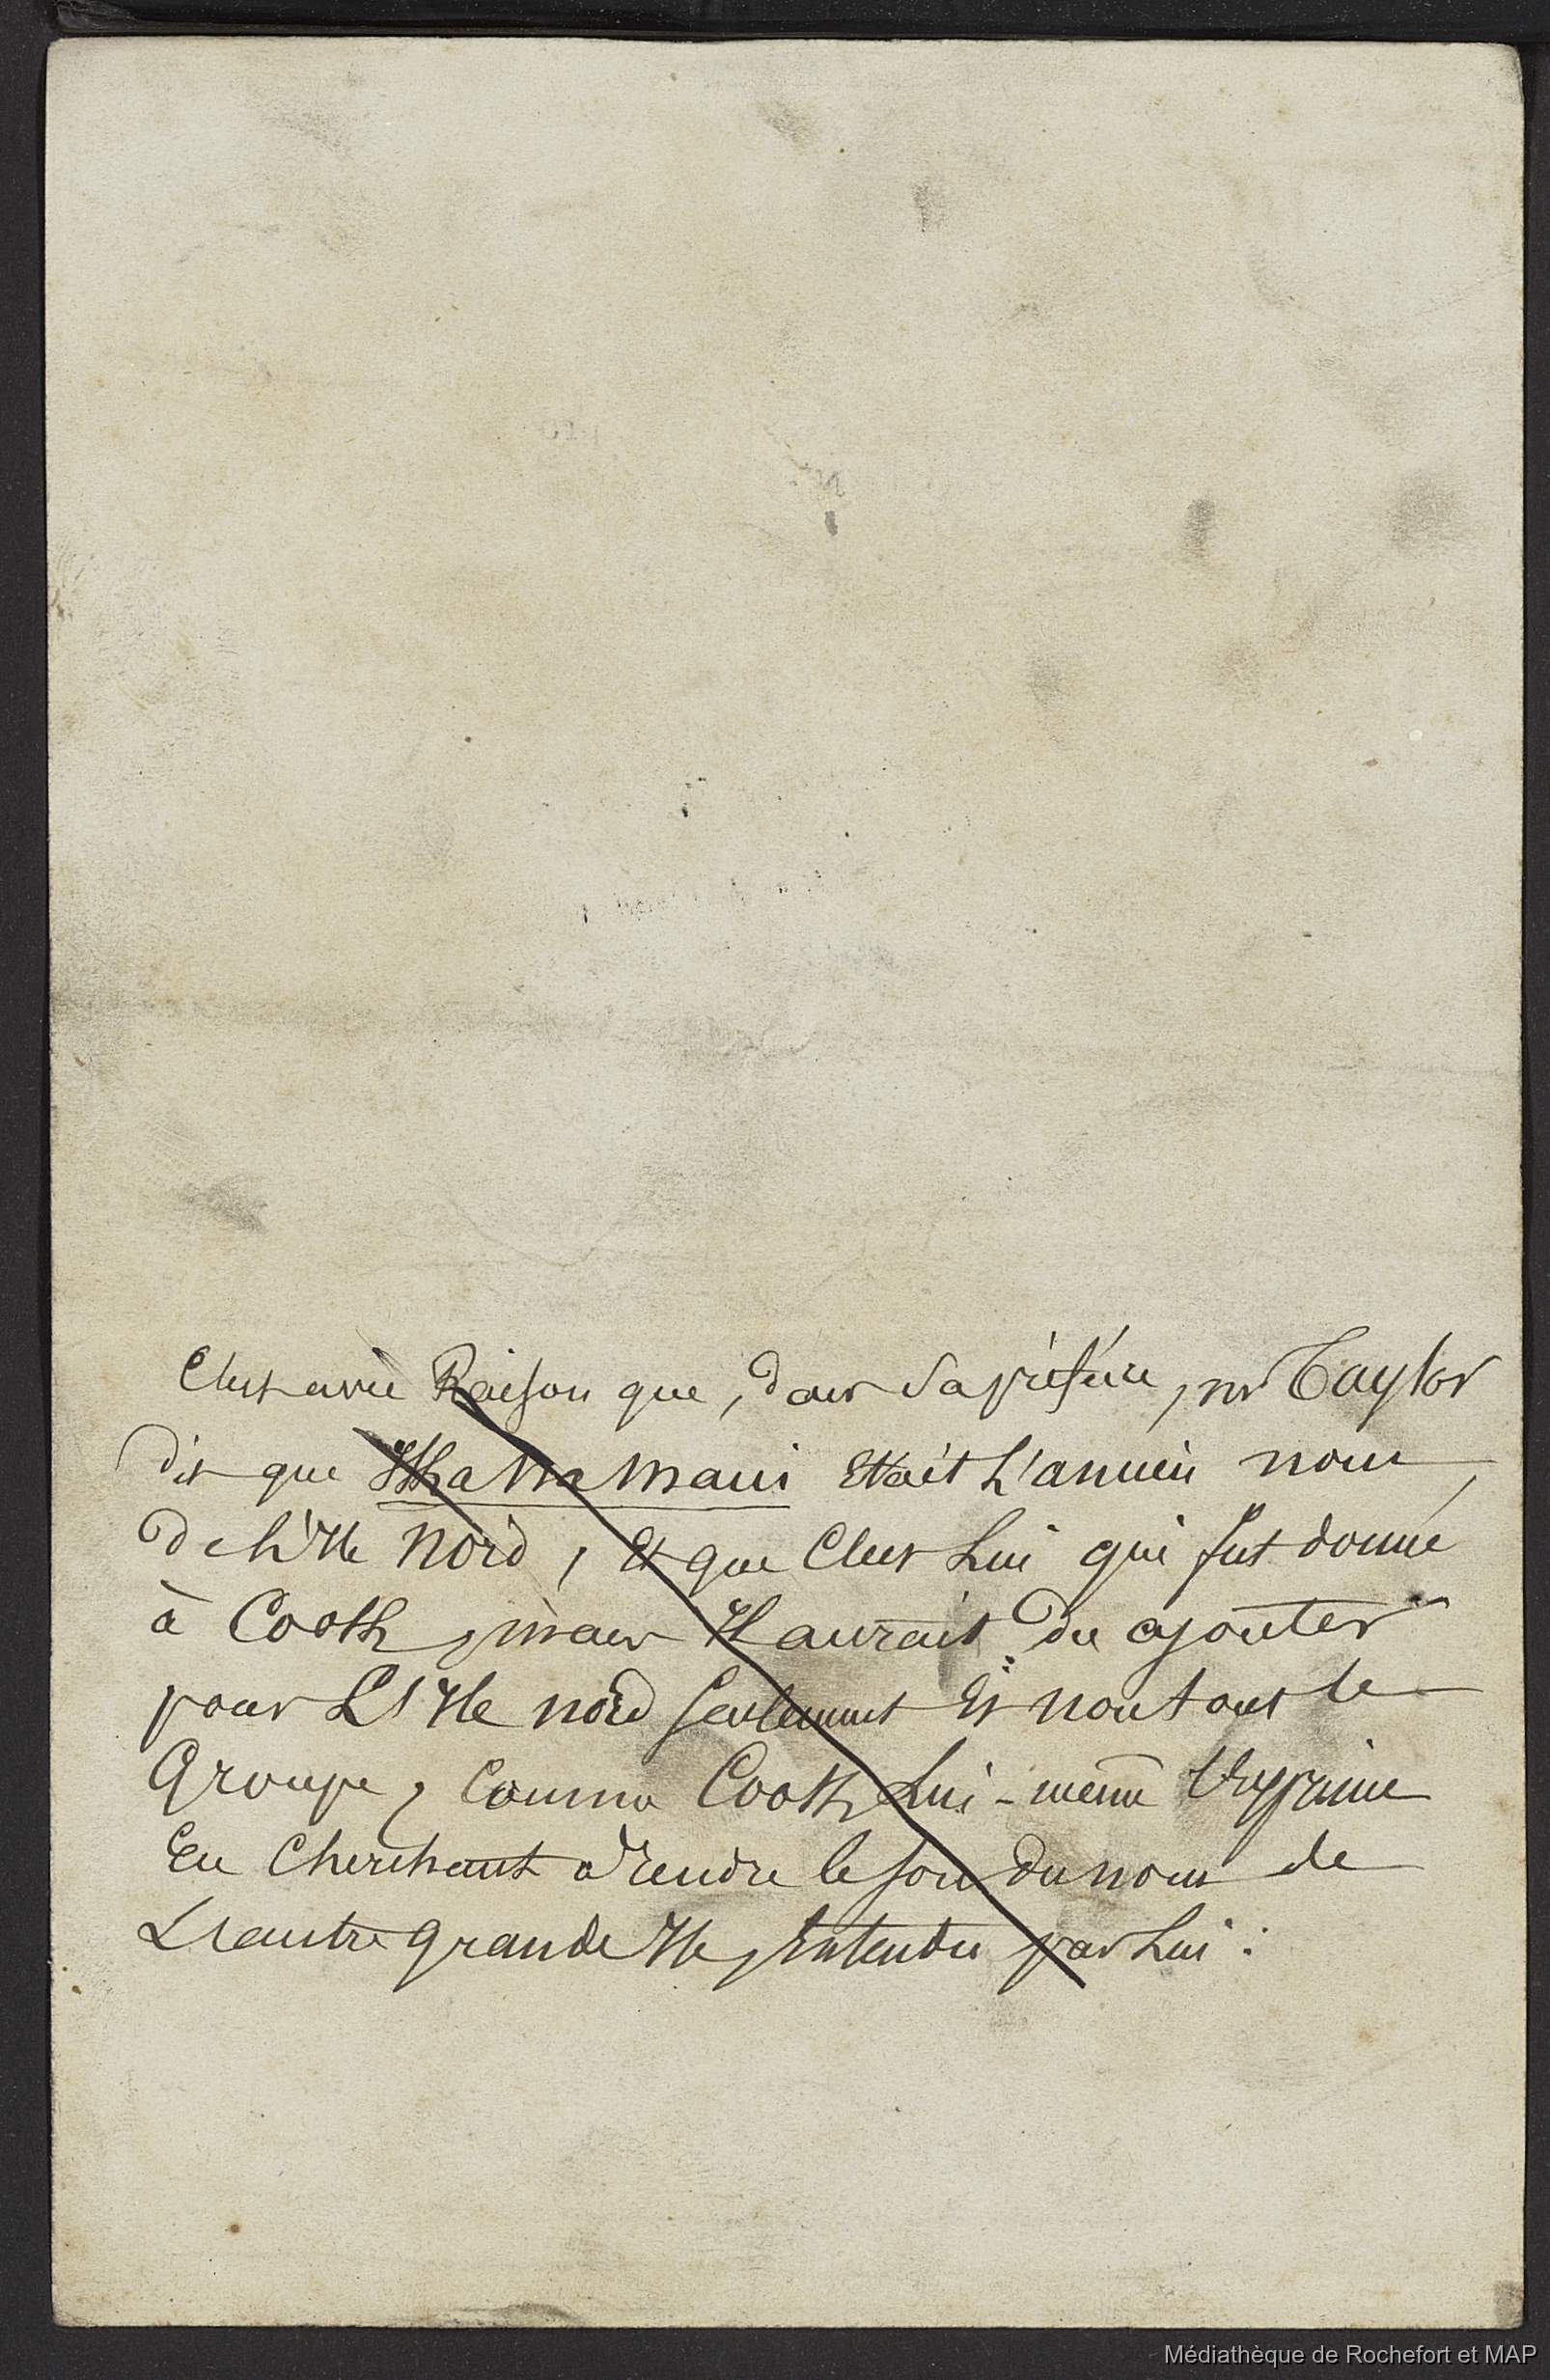 C'est avec Raison que, dans sa préface, mr Taylor
dit que Ika Na Maui était L'ancien nom,
de L'Ile Nord, Et que C'est Lui qui fut donné
à Cook, mais Il aurait du ajouter
pour L'Ile nord Seulement Et non tout le
Groupe, Comme Cook Lui-même L'exprime
En Cherchant à rendre le son du nom de
L'autre grande Ile, Entendu par Lui :
Médiathèque de Rochefort et MAP